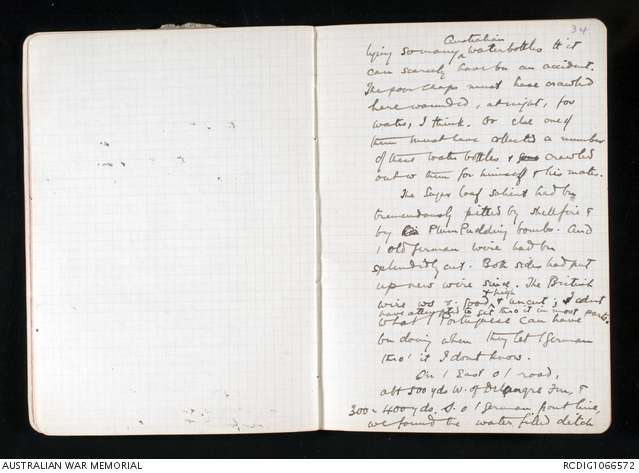 34
lying so many Australian waterbottles tt it
can scarcely have bn an accident.
The poor chaps must have crawled
here wounded, at night, for
water, I think. Or else one of
them must have collected a number
of these water bottles & crawled
out w them for himself & his mates.
The Sugar loaf salient had bn
tremendously pitted by shellfire &
by Plum Pudding bombs. And
/ old German wire had bn
splendidly cut. Both sides had put
up new wire since. The British
wire ws v. good & high & uncut; I cdnt
have attempted to get thro it in most parts.
What / Portuguese can have
bn doing when they let / German
thro' it I dont know.
On / East o / road,
abt 500 yds W. of Delangre Fm, &
300-400 yds. S. o / German front line,
we found the water filled ditch
AUSTRALIAN WAR MEMORIAL
RCDIG1066572